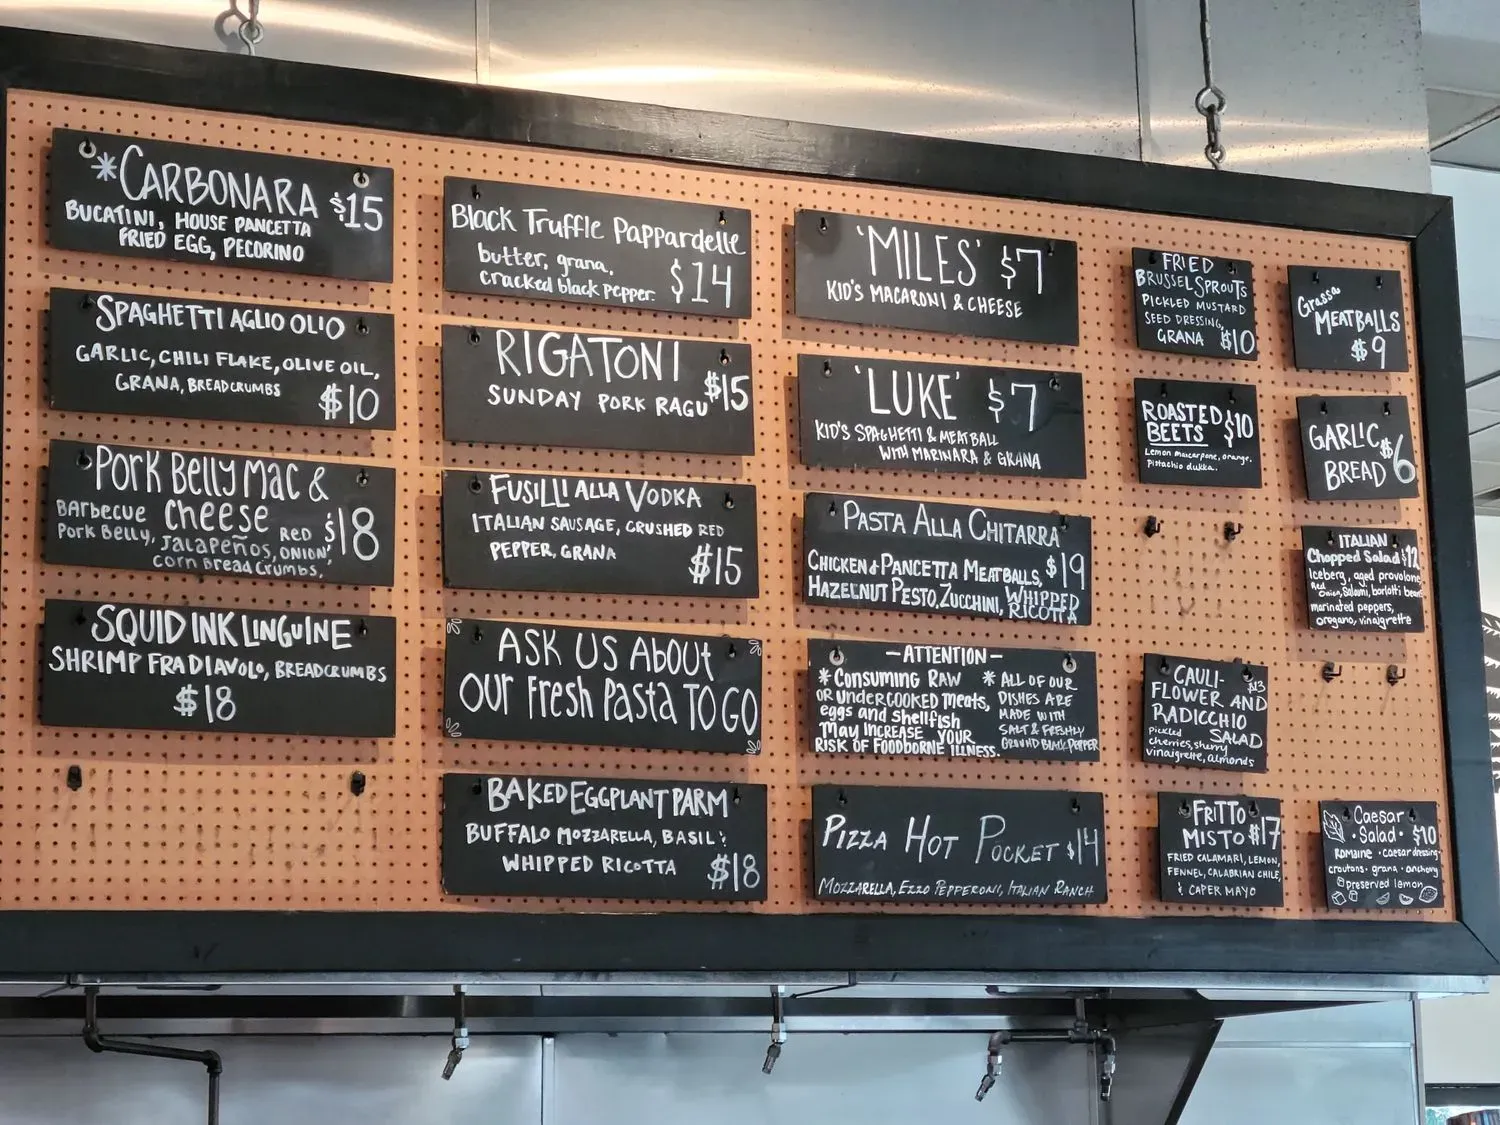 *CARBONARA $15
BUCATINI, HOUSE PANCETTA
FRIED EGG, PECORINO
SPAGHETTI AGLIO OLIO
GARLIC, CHILI FLAKE, OLIVE OIL,
GRANA, BREADCRUMBS $10
PORK BELLY MAC &
CHEESE $18
BARBECUE
PORK BELLY, JALAPEÑOS, RED ONION,
CORN BREAD CRUMBS,
SQUID INK LINGUINE
SHRIMP FRA DIAVOLO, BREADCRUMBS
$18
Black Truffle Pappardelle
butter, grana,
cracked black pepper. $14
RIGATONI
SUNDAY PORK RAGU $15
FUSILLI ALLA VODKA
ITALIAN SAUSAGE, CRUSHED RED
PEPPER, GRANA $15
ASK US ABOUT
OUR FRESH PASTA TO GO
BAKED EGGPLANT PARM
BUFFALO MOZZARELLA, BASIL,
WHIPPED RICOTTA $18
'MILES' $7
KID'S MACARONI & CHEESE
'LUKE' $7
KID'S SPAGHETTI & MEATBALL
WITH MARINARA & GRANA
PASTA ALLA CHITARRA
CHICKEN & PANCETTA MEATBALLS, $19
HAZELNUT PESTO, ZUCCHINI, WHIPPED
RICOTTA
-ATTENTION-
* Consuming RAW
OR UNDERCOOKED meats,
eggs and shellfish
May INCREASE YOUR
RISK OF FOODBORNE ILLNESS.
* ALL OF OUR
DISHES ARE
MADE WITH
SALT & FRESHLY
GROUND BLACK PEPPER
PIZZA HOT POCKET $14
MOZZARELLA, EZZO PEPPERONI, ITALIAN RANCH
FRIED
BRUSSEL SPROUTS
PICKLED MUSTARD
SEED DRESSING,
GRANA $10
ROASTED
BEETS $10
Lemon mascarpone, orange,
pistachio dukka.
CAULI-
FLOWER AND $13
RADICCHIO
SALAD
pickled
cherries, sherry
vinaigrette, almonds
FRITTO
MISTO $17
FRIED CALAMARI, LEMON,
FENNEL, CALABRIAN CHILE,
& CAPER MAYO
Grassa
MEATBALLS
$9
GARLIC
BREAD $6
ITALIAN
Chopped Salad $12
Iceberg, aged provolone
Red onion, Salami, borlotti beans
marinated peppers,
oregano, vinaigrette
Caesar
• Salad • $10
Romaine • caesar dressing
croutons • grana • anchovy
preserved lemon